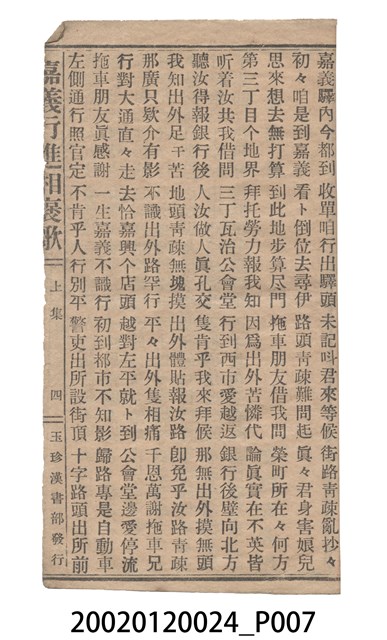 嘉義驛內今都到 收單咱行出驛頭 未記呌君來等候 街路青疎亂抄々
初々咱是到嘉義 看卜倒位去尋伊 路頭青疎難問起 眞々君身害娘兒
思來想去無打算 到此地步算尽門 拖車朋友借我問 榮町所在々何方
第三丁目个地界 拜托勞力報我知 因爲出外苦憐代 論眞實在不英皆
听着汝共我借問 三丁瓦治公會堂 行到西市愛越返 銀行後壁向北方
聽汝得報銀行後 人汝做人眞孔交 隻肯乎我來拜候 那無出外摸無頭
我知出外足干苦 地頭青疎無塊摸 出外體貼報汝路 卽免乎汝路青疎
那廣只欵介有影 不識出外路罕行 平々出外隻相痛 千恩萬謝拖車兄
行對大通直々走 去恰嘉興个店頭 越對左平就卜到 公會堂邊愛停流
拖車朋友眞感謝 一生嘉義不識行 初到都市不知影 歸路專是自動車
左側通行照官定 不肯乎人行別平 警吏出所設街頂 十字路頭出所前
嘉義行進相褒歌 上集 四 玉珍漢書部發行
20020120024_P007